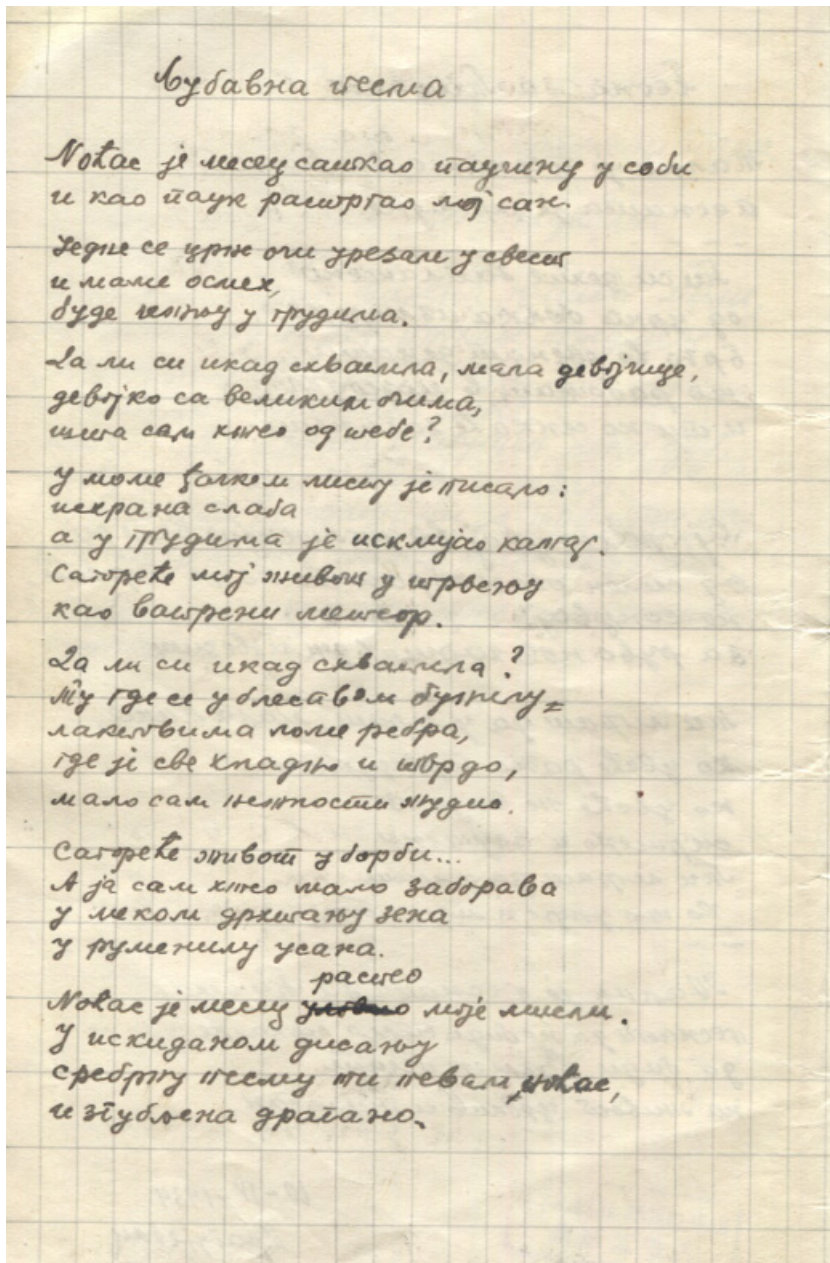 Љубавна песма
Ноћас је месец саткао паучину у соби
и као паук растргао мој сан.
Једне се црне очи урезале у свест
и маме осмех,
буде чежњу у грудима.
Да ли си икад схватила, мала девојчице,
девојко са великим очима,
шта сам хтео од тебе?
У моме ђачком листу је писало:
исхрана слаба
а у грудима је исклијао
Сагореће мој живот у трвењу
као ватрени метеор.
Да ли си икад схватила?
Ту где се у блеставом
лактовима ломе ребра,
где је све хладно и тврдо,
мало сам нежности жудио.
Сагореће живот у борби...
А ја сам хтео мало заборава
у меком дрхтању зена
у руменилу усана.
растео
Ноћас је месец моје мисли.
У искиданом дисању
сребрну песму ти певам, ноћас,
изгубљена драгано.